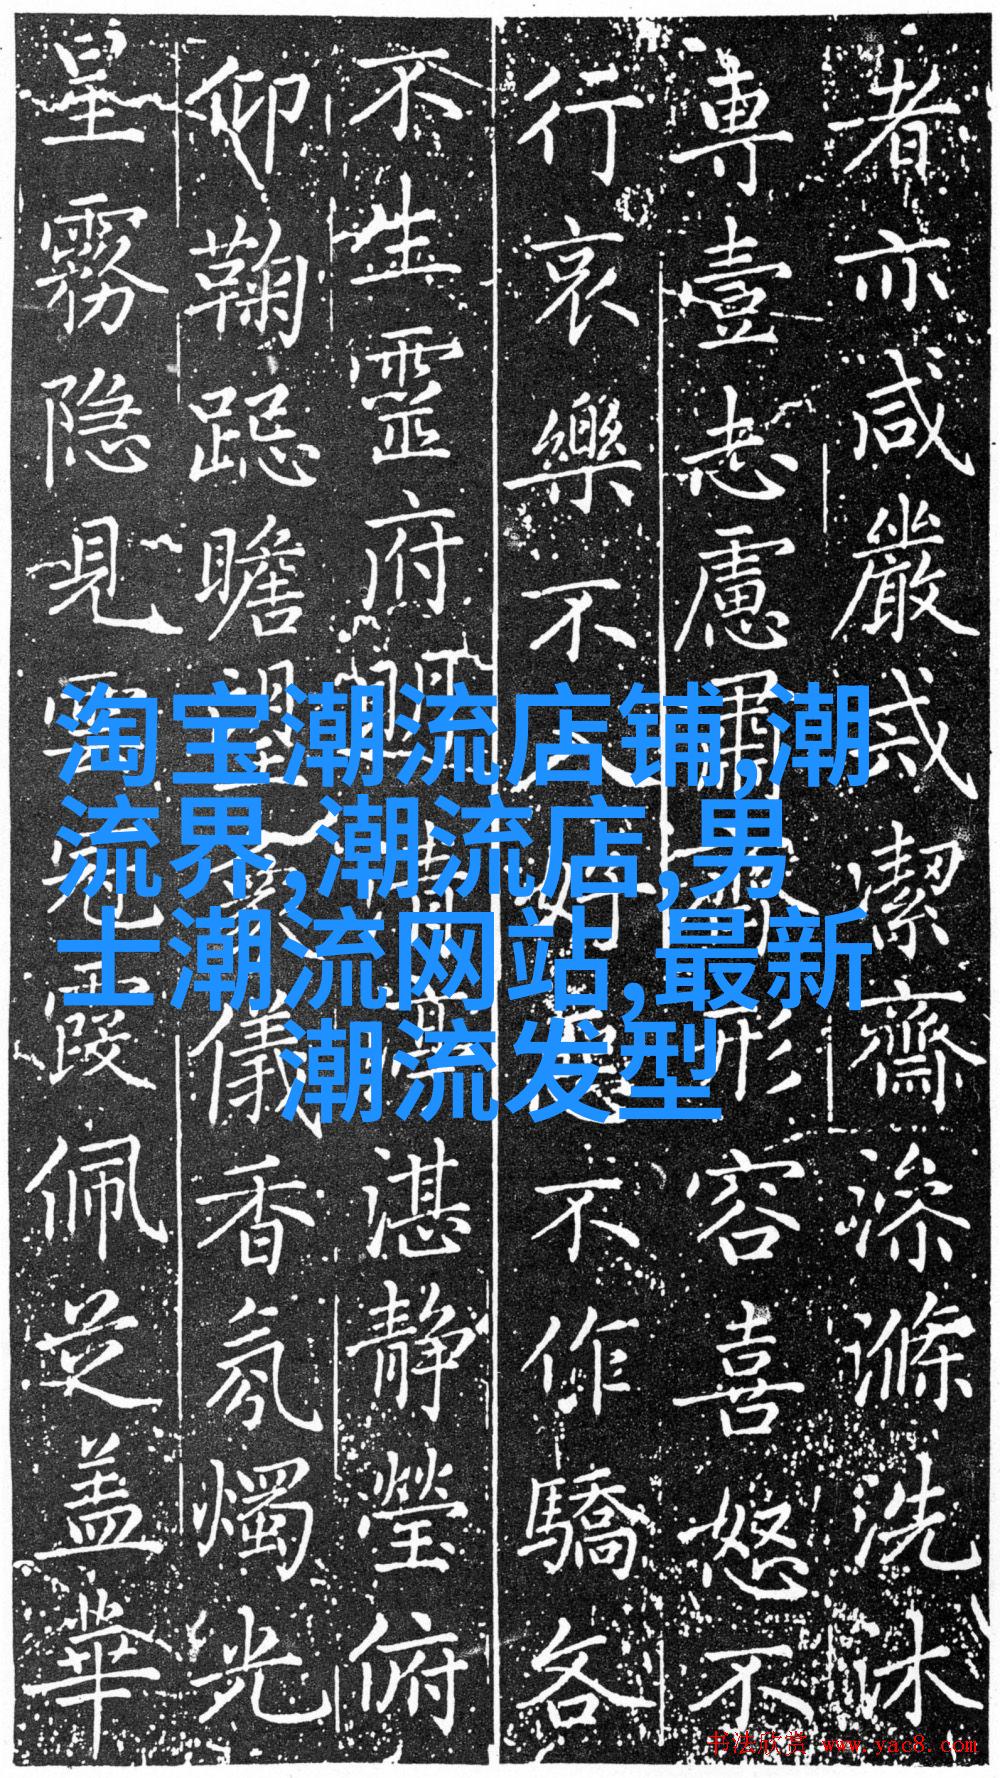 者亦咸嚴戒潔齋澡滌洗沐
専壹志慮肅形容喜怒不
行哀樂不入好惡不作驕各
不生靈府湛静瑩俯
仰鞠跽瞻望儀香氛燭光
星霧隐見雲冠霞佩芝盖華
淘宝潮流店铺,潮
流界,潮流店,男
士潮流网站,最新
潮流发型
书法欣赏 www.yac8.com